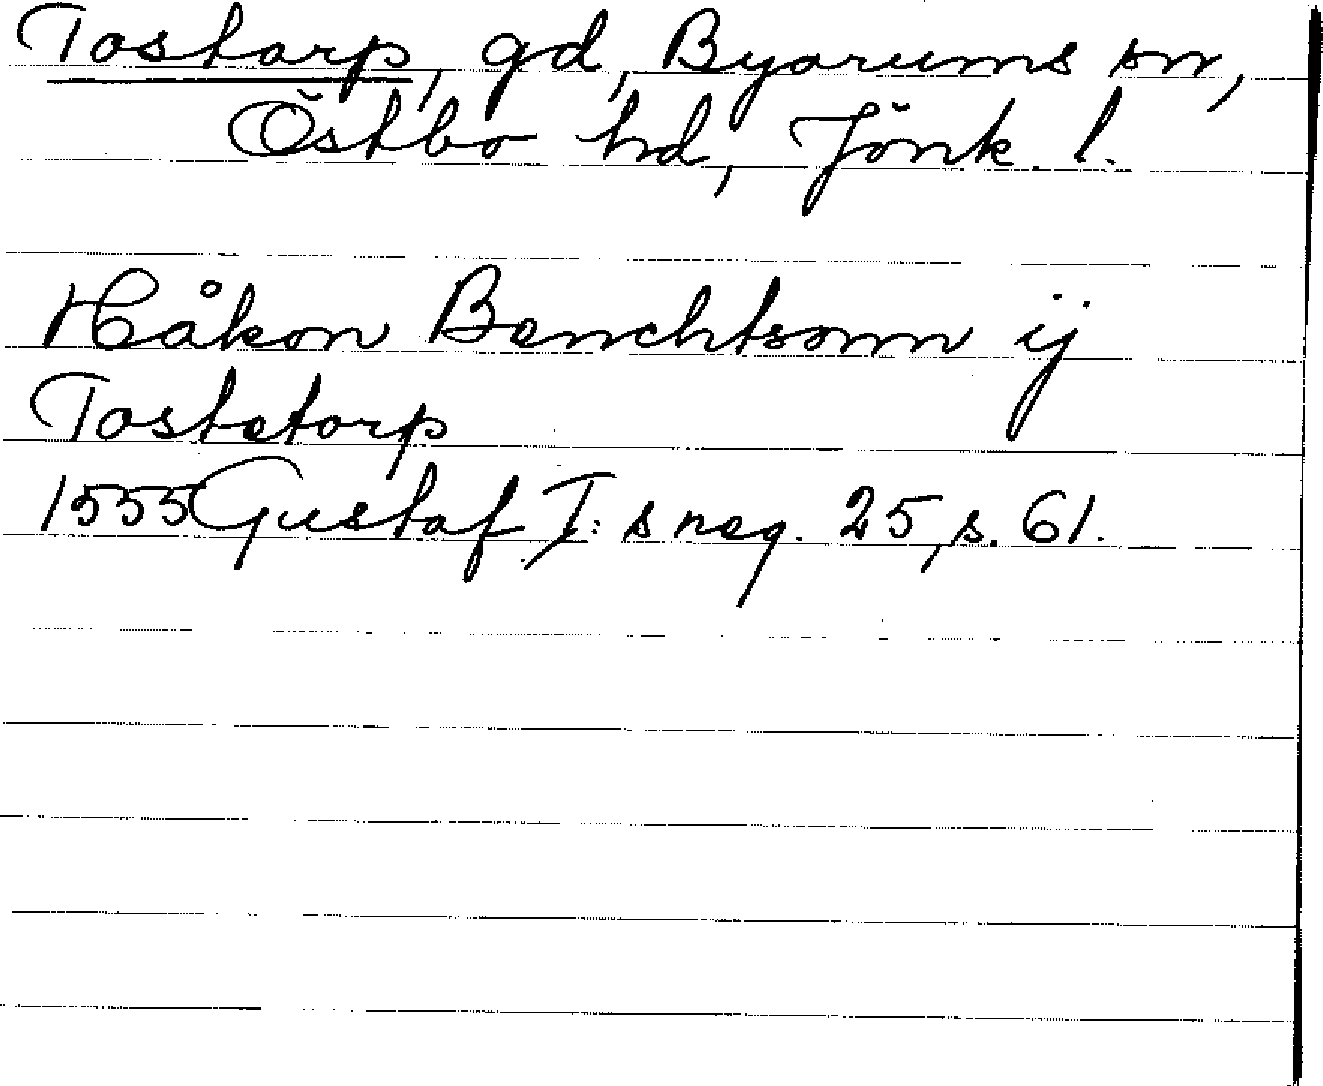 Tostarp, gd, Byarums sn,
Östbo hd, Jönk. l.
Håkon Benchtsonn ij
Tostetorp
1555 Gustaf I:s reg. 25, s. 61.